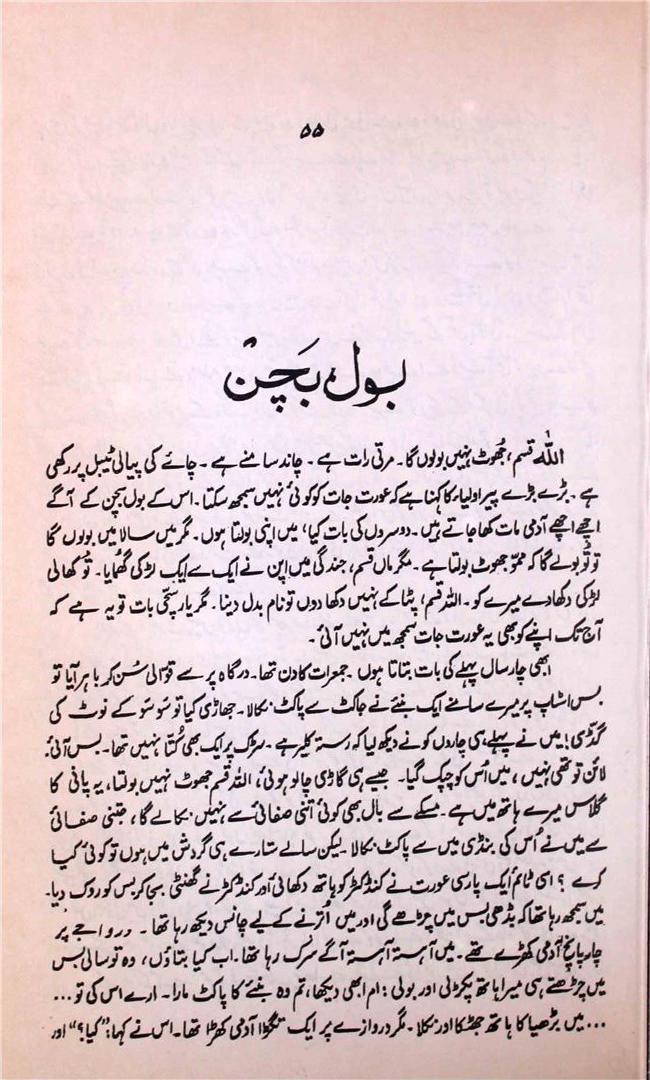 ۵۵
بول بَچن
اللہ قسم، جُھوٹ نہیں بولوں گا۔ مرتی رات ہے۔ چاند سامنے ہے۔ چائے کی پیالی ٹیبل پر رکھی
ہے۔ بڑے بڑے پیر اولیاء کا کہنا ہے کہ عورت جات کو کوئی نہیں سمجھ سکتا۔ اس کے بول بچن کے آگے
اچھے اچھے آدمی مات کھا جاتے ہیں۔ دوسروں کی بات کیا، میں اپنی بولتا ہوں۔ مگر میں سالا میں بولوں گا
تو تُو بولے گا کہ ممّو جھوٹ بولتا ہے۔ مگر ماں قسم، جندگی میں اپن نے ایک سے ایک لڑکی گھمایا۔ تُو کھالی
لڑکی دکھا دے میرے کو۔ اللہ قسم، پٹا کے نہیں دکھا دوں تو نام بدل دینا۔ مگر یار سچّی بات تو یہ ہے کہ
آج تک اپنے کو بھی یہ عورت جات سمجھ میں نہیں آئی۔
ابھی چار سال پہلے کی بات بتاتا ہوں۔ جمعرات کا دن تھا۔ درگاہ پر سے قوالی سُن کر باہر آیا تو
بس اسٹاپ پر میرے سامنے ایک بنئے نے جاکٹ سے پاکٹ نکالا۔ جھاڑی کیا تو سَو سَو کے نوٹ کی
گڈّی! میں نے پہلے ہی چاروں کو نے دیکھ لیا کہ رستہ کلیر ہے۔ سڑک پر ایک بھی کُتّا نہیں تھا۔ بس آئی۔
لائن تو تھی نہیں، میں اُس کو چپک گیا۔ جیسے ہی گاڑی چالو ہوئی، اللہ قسم جھوٹ نہیں بولتا، یہ پانی کا
گلاس میرے ہاتھ میں ہے۔ مسکے سے بال بھی کوئی اتنی صفائی سے نہیں نکالے گا، جتنی صفائی
سے میں نے اُس کی بنڈی میں سے پاکٹ نکالا۔ لیکن سالے ستارے ہی گردش میں ہوں تو کوئی کیا
کرے؟ اسی ٹائم ایک پارسی عورت نے کنڈکٹر کو ہاتھ دکھائی اور کنڈکٹر نے گھنٹی بجا کر بس کو روک دیا۔
میں سمجھ رہا تھا کہ بڈھی بس میں چڑھے گی اور میں اُترنے کے لیے چانس دیکھ رہا تھا۔ دروا جے پر
چار پانچ آدمی کھڑے تھے۔ میں آہستہ آہستہ آگے سرک رہا تھا۔ اب کیا بتاؤں، وہ تو سالی بس
میں چڑھتے ہی میرا ہاتھ پکڑلی اور بولی: ام ابھی دیکھا، تم وہ بنئے کا پاکٹ مارا۔ ارے اس کی تو...
... میں بڑھیا کا ہاتھ جھٹکا اور نکلا۔ مگر دروازے پر ایک تگڑا آدمی کھڑا تھا۔ اس نے کہا: ”کیا؟“ اور